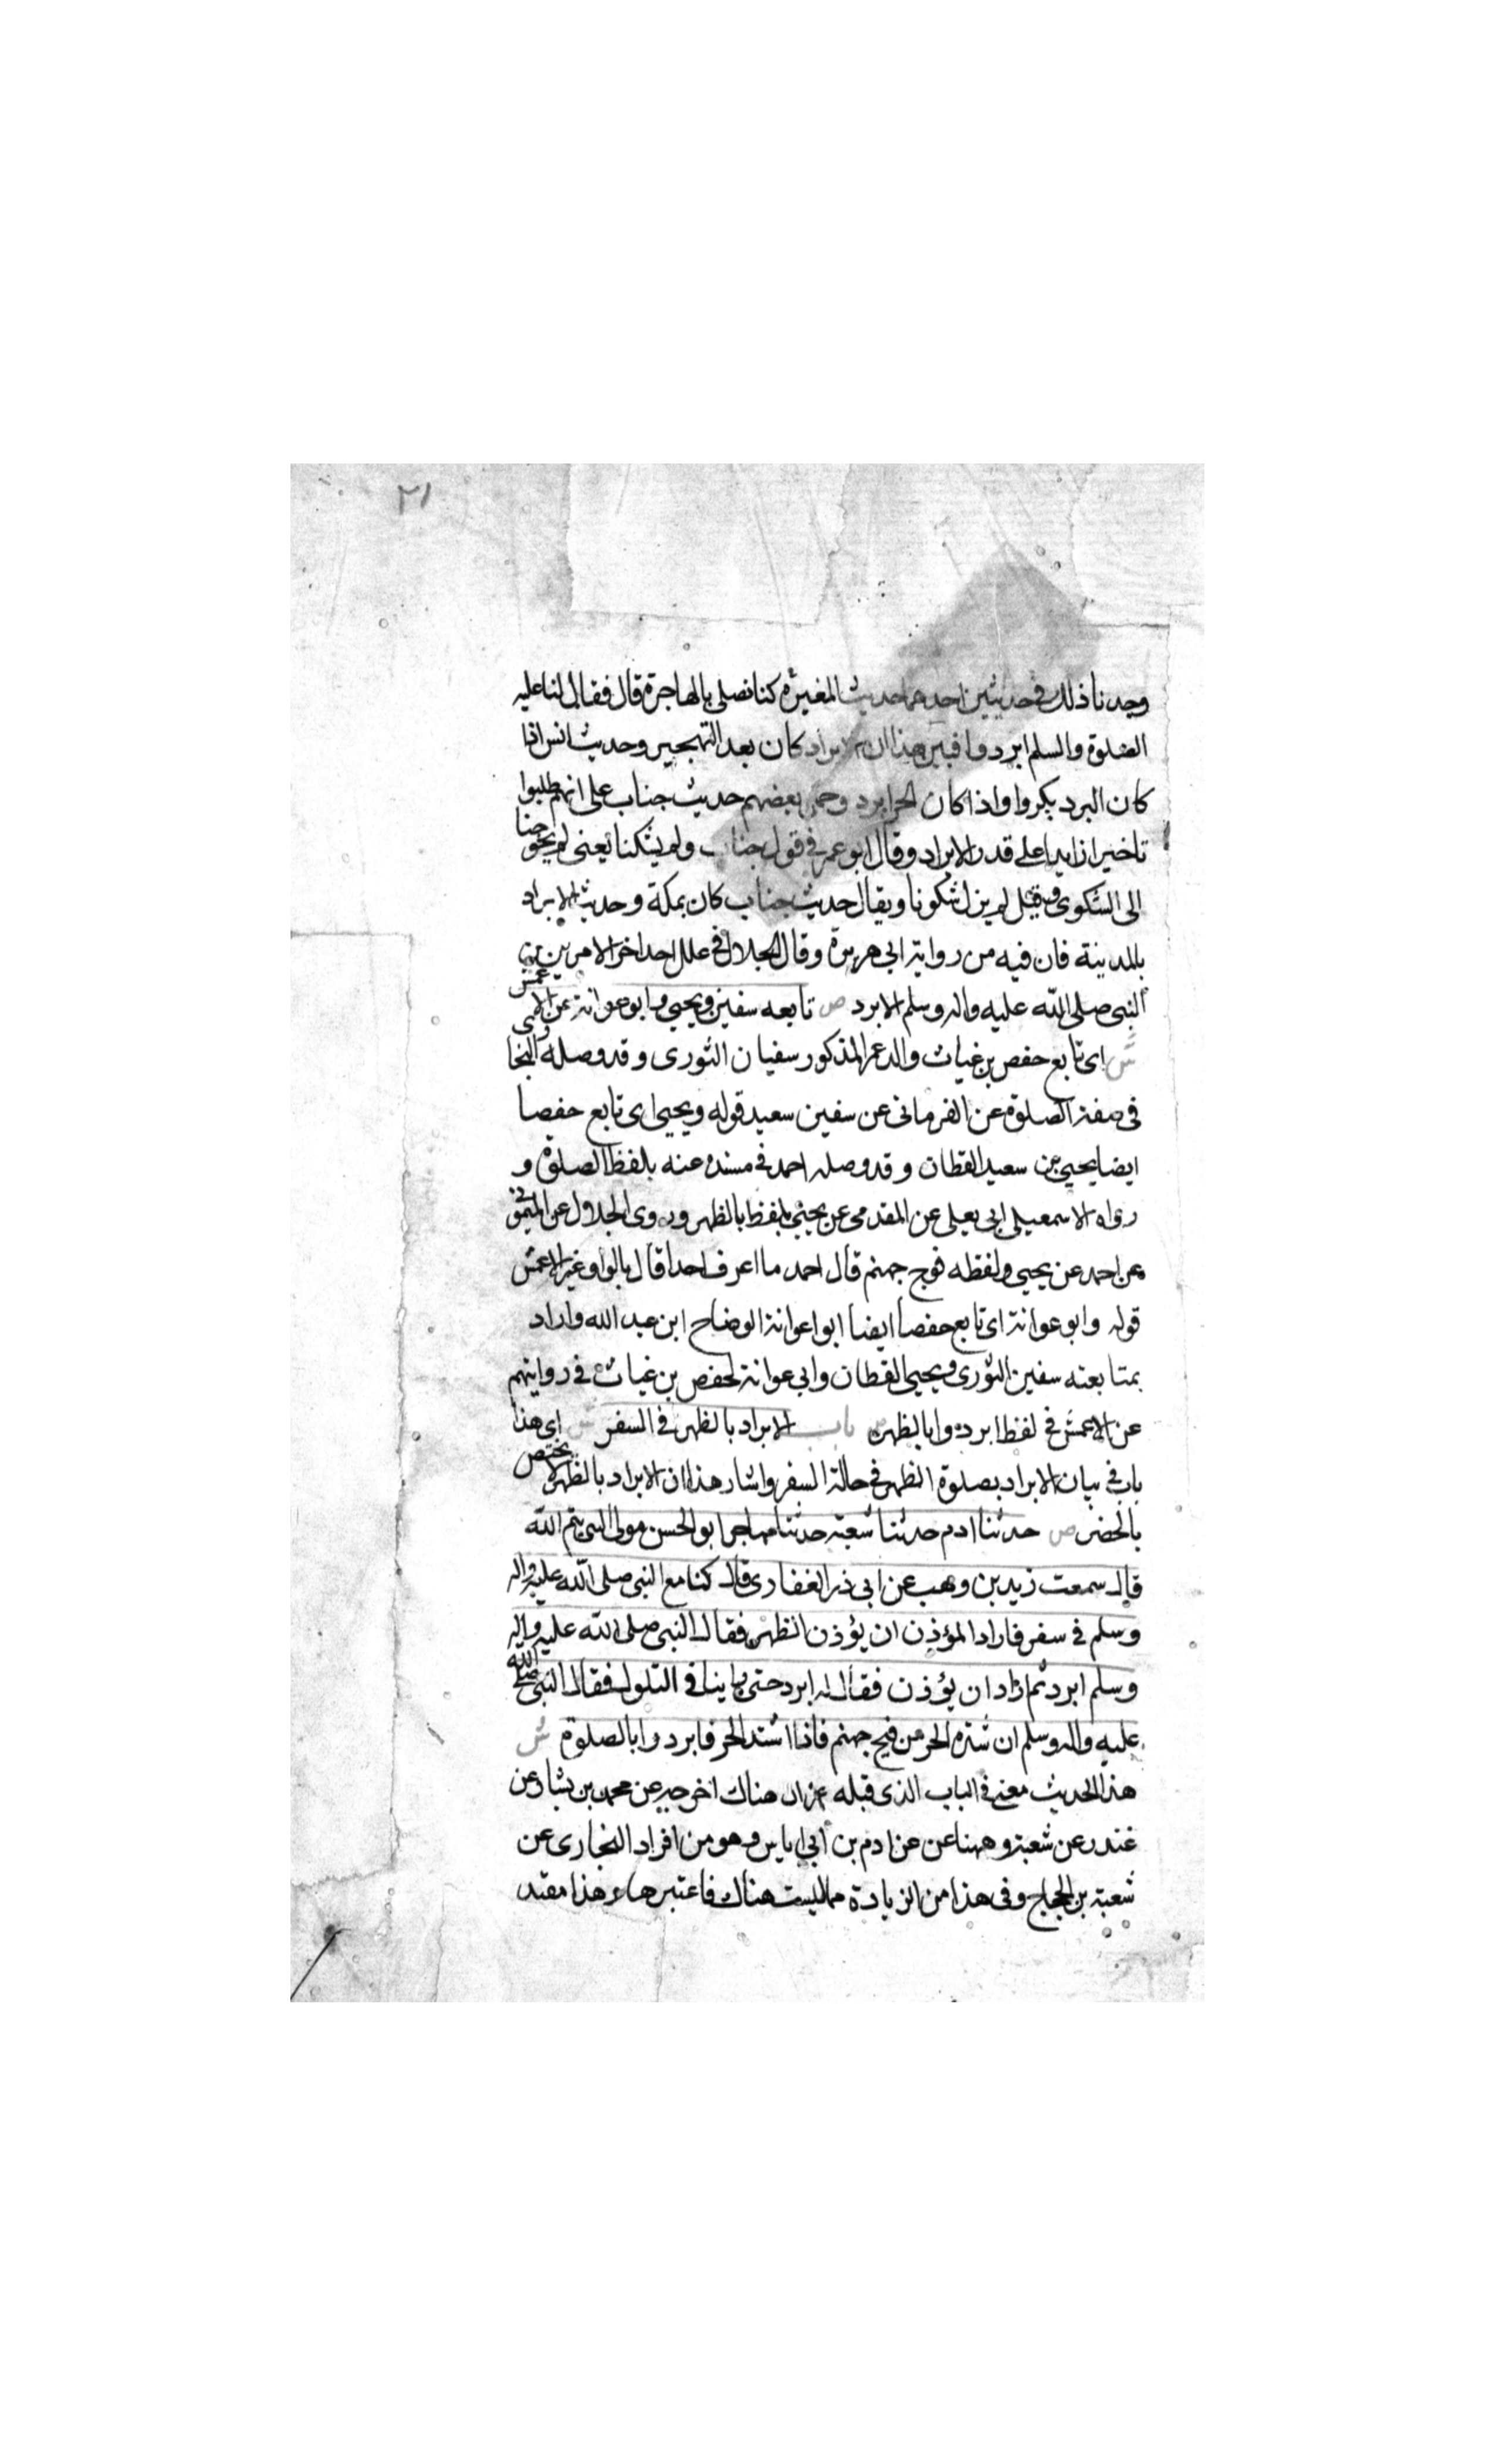 ٢١
وجدنا ذلك فى حديثين احدهما حديث المغيرة كنا نصلى بالهاجرة قال فقال لنا عليه
الصلوة والسلم ابردوا فبين هذا ان الابراد كان بعد التهجير وحديث انس اذا
كان البرد بكروا واذا كان الحر ابرد وحمل بعضهم حديث جناب على انهم طلبوا
تاخيرا زايدا على قدر الابراد وقال ابو عمر فى قول جناب ولم يشكنا يعنى لم يحوجنا
الى الشكوى وقيل لم يزل شكونا ويقال حديث جناب كان بمكة وحديث الابراد
بالمدينة فان فيه من رواية ابى هريرة وقال الجلال فى علل احد اخر الامرين من
النبى صلى الله عليه واله وسلم الابرد ص تابعه سفين ويحيى وابو عوانة عن الاعمش
ش اى تابع حفص بن غياث والد عمر المذكور سفيان الثورى وقد وصله البخا
فى صفة الصلوة عن الفرمانى عن سفين سعيد قوله ويحيى اى تابع حفصا
ايضا يحيى بن سعيد القطان وقد وصله احمد فى مسنده عنه بلفظ الصلوة و
رواه الاسمعيلى ابى يعلى عن المقدمى عن يحيى بلفظ بالظهر وروى الجلال عن
عن احمد عن يحيى ولفظه فوج جهنم قال احمد ما اعرف احدا قال بالواو غير الاعمش
قوله وابو عوانة اى تابع حفصا ايضا ابوا عوانة الوضاح ابن عبد الله واراد
بمتابعته سفين الثورى ويحيى القطان وابى عوانة لحفص بن غياث فى روايتهم
عن الاعمش فى لفظ ابردوا بالظهر ص باب الابراد بالظهر فى السفر ش اى هذا
باب فى بيان الابراد بصلوة الظهر فى حالة السفر واشار هذا ان الابراد بالظهر لا يختص
بالحضر ص حدثنا ادم حدثنا شعبة حدثنا مهاجر ابو الحسن مولى لبنى تيم الله
قال سمعت زيد بن وهب عن ابى ذر الغفارى قال كنا مع النبى صلى الله عليه واله
وسلم فى سفر فاراد المؤذن ان يؤذن الظهر فقال النبى صلى الله عليه واله
وسلم ابرد ثم اراد ان يؤذن فقال له ابرد حتى راينا فى التلول فقال النبى صلى الله
عليه واله وسلم ان شدة الحر من فيح جهنم فاذا اشتد الحر فابردوا بالصلوة ش
هذا الحديث معنى فى الباب الذى قبله غير ان هناك اخرجه عن محمد بن بشار عن
غندر عن شعبة وههنا عن عن ادم بن ابى اياس وهو من افراد البخارى عن
شعبة بن الحجاج وفى هذا من الزيادة مما ليست هناك فاعتبرها وهذا مقيد